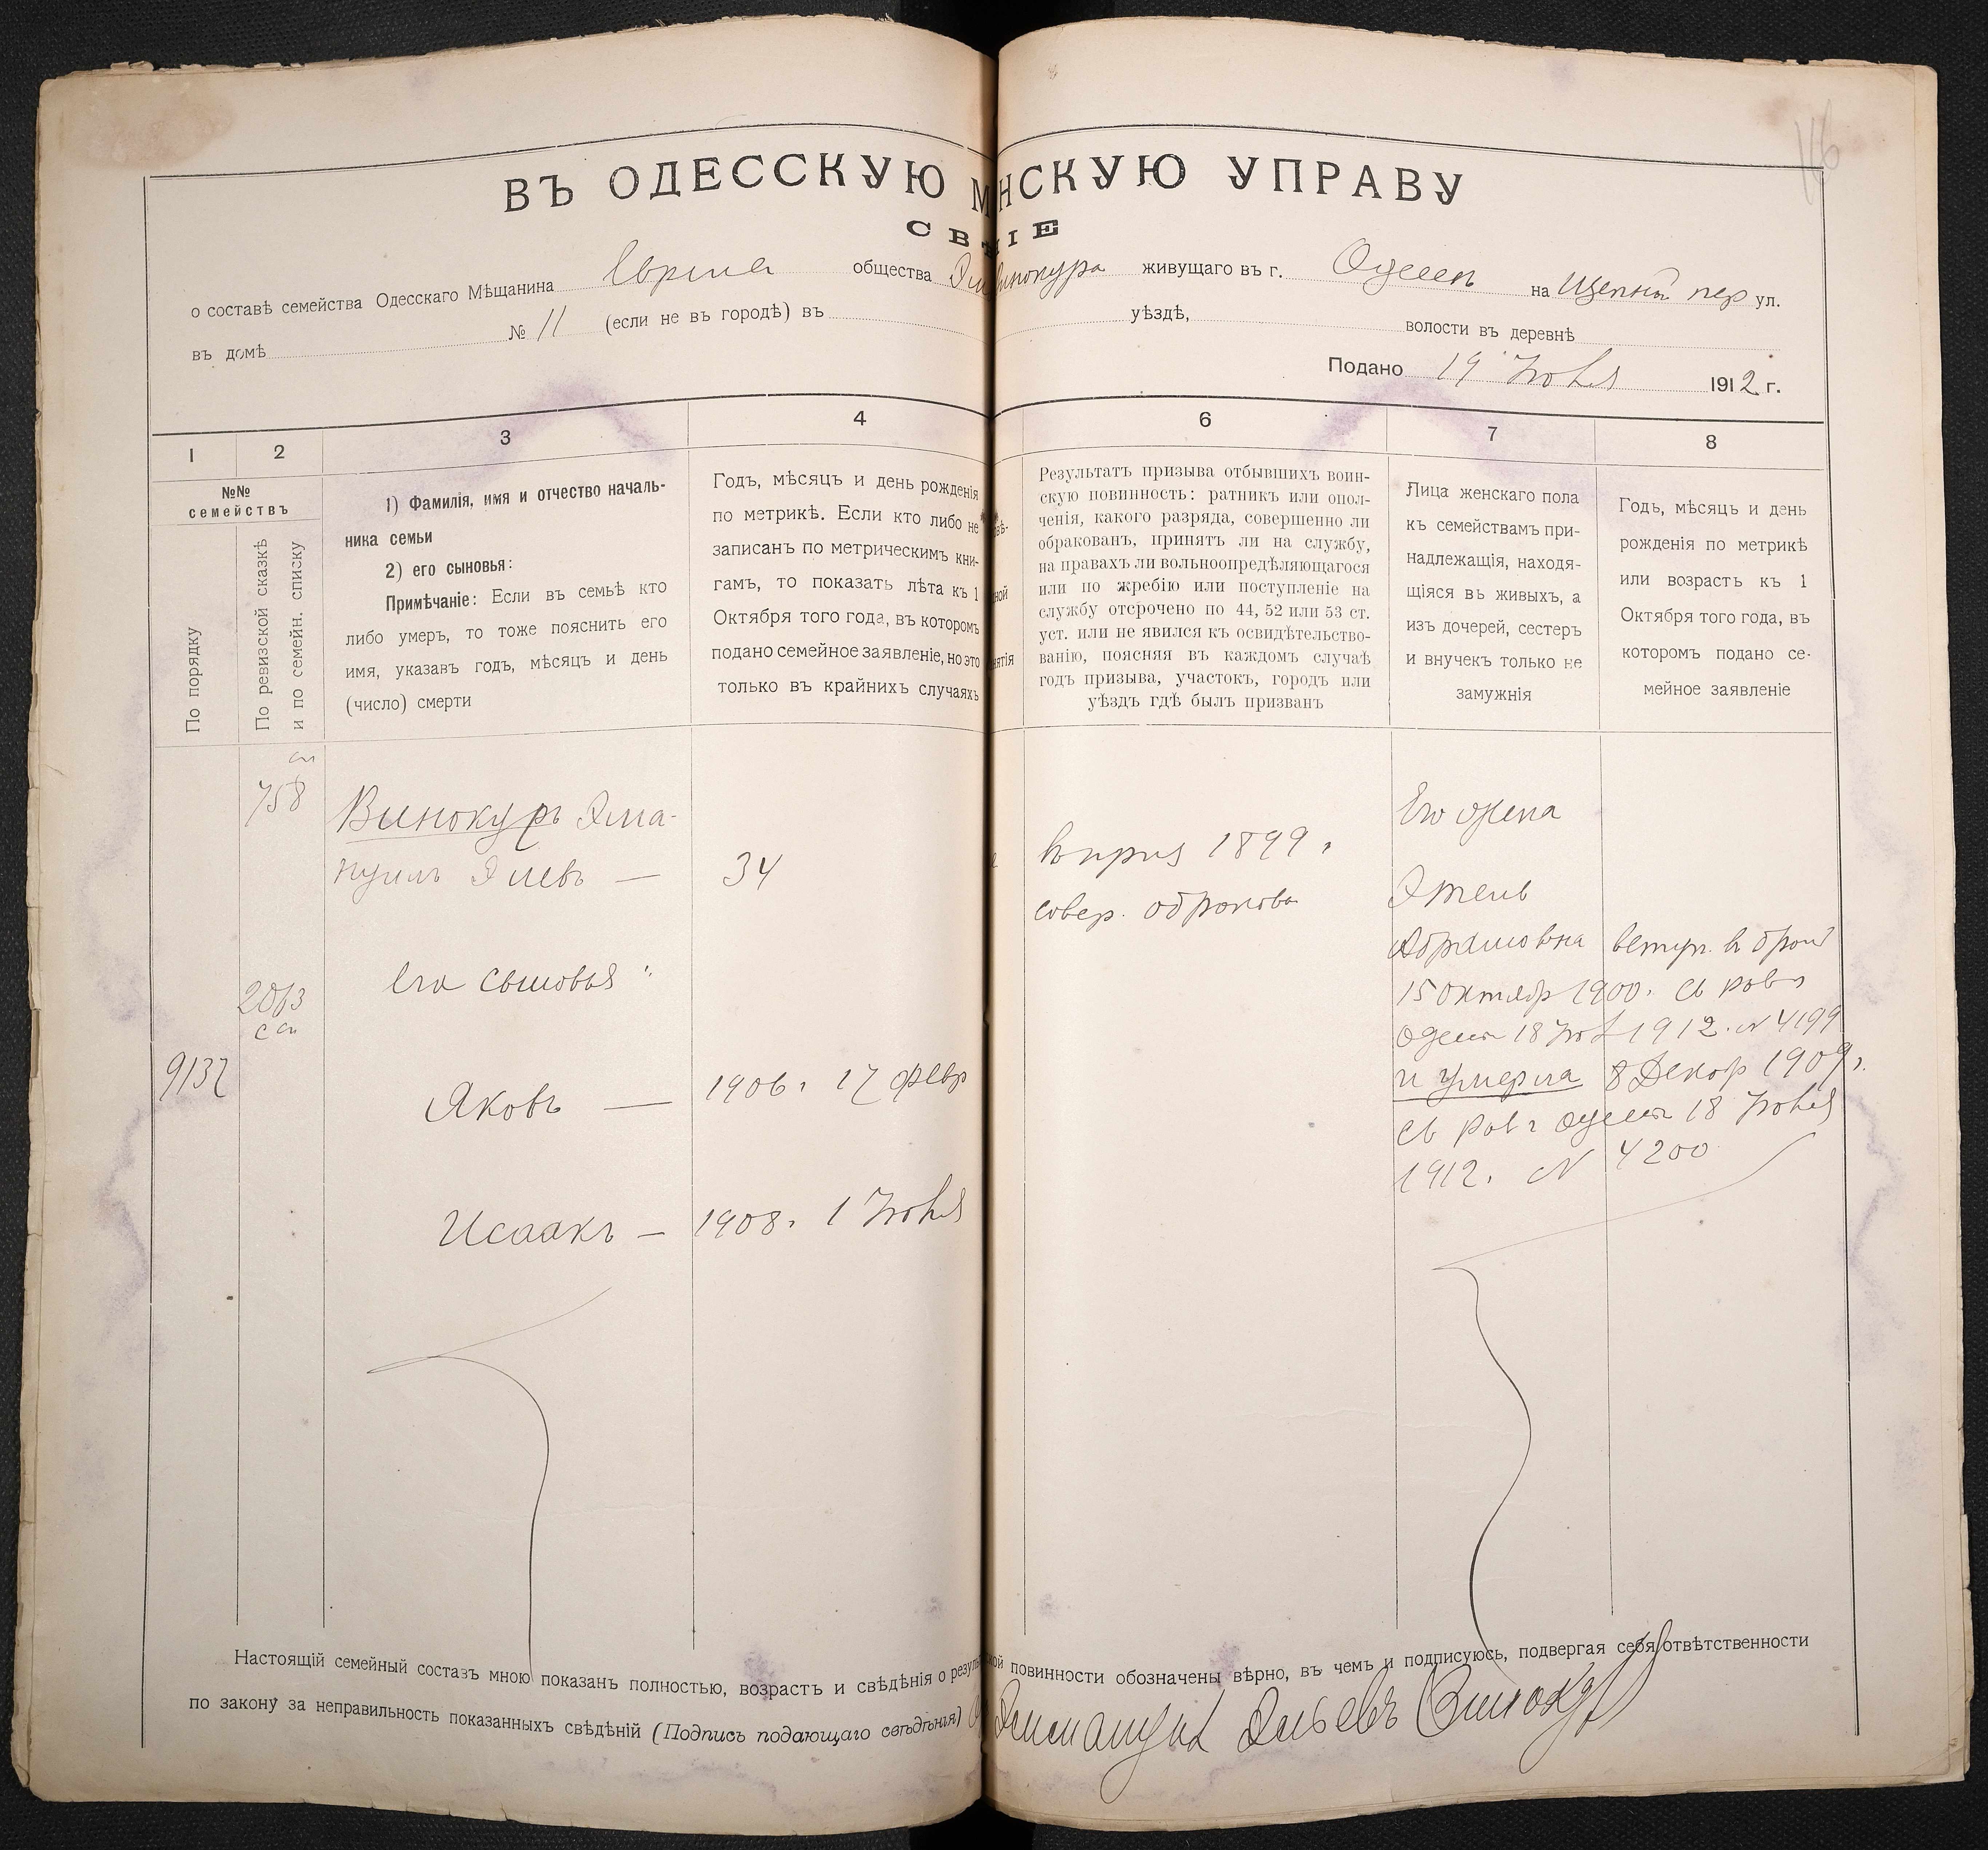 146
ВЪ ОДЕССКУЮ М НСКУЮ УПРАВУ
СВ НІЕ
о составѣ семейства Одесскаго Мѣщанина общества Винокура живущаго въ г. Одессѣ на Щепной пер ул.
въ домѣ № 11 (если не въ городѣ) въ уѣздѣ, волости въ деревнѣ
Подано 19 Іюля 1912 г.
1 2 3 4 6 7 8
№№
семействъ
По порядку
По ревизской сказкѣ
и по семейн. списку
1) Фамилія, имя и отчество началь-
ника семьи
2) его сыновья:
Примѣчаніе: Если въ семьѣ кто
либо умеръ, то тоже пояснить его
имя, указавъ годъ, мѣсяцъ и день
(число) смерти
Годъ, мѣсяцъ и день рожденія
по метрикѣ. Если кто либо не
записанъ по метрическимъ кни-
гамъ, то показать лѣта къ 1
Октября того года, въ которомъ
подано семейное заявленіе, но это
только въ крайнихъ случаяхъ
Результатъ призыва отбывшихъ воин-
скую повинность: ратникъ или опол-
ченія, какого разряда, совершенно ли
обракованъ, принятъ ли на службу,
на правахъ ли вольноопредѣляющагося
или по жребію или поступленіе на
службу отсрочено по 44, 52 или 53 ст.
уст. или не явился къ освидѣтельство-
ванію, поясняя въ каждомъ случаѣ
годъ призыва, участокъ, городъ или
уѣздъ гдѣ былъ призванъ
Лица женскаго пола
къ семействамъ при-
надлежащія, находя-
щіяся въ живыхъ, а
изъ дочерей, сестеръ
и внучекъ только не
замужнія
Годъ, мѣсяцъ и день
рожденія по метрикѣ
или возрастъ къ 1
Октября того года, въ
которомъ подано се-
мейное заявленіе
758
Винокуръ Эма-
нуилъ Элевъ — 34
Его сыновья:
9132
Яковъ — 1906 г 17 Февр
Исаакъ — 1908 г 1 Іюля
1899 г
совер. обракова
Его жена
Этель
Абрамовна вступ. в брак
15 октябр 1900 г св рав
Одесск 18 Іюл 1912 г № 4199
и умерла 8 Декабр 1909 г.
св рав г Одесск 18 Іюля
1912 г. № 4200
Настоящій семейный составъ мною показанъ полностью, возрастъ и свѣдѣнія о резуль ской повинности обозначены вѣрно, въ чемъ и подписуюсь, подвергая себя отвѣтственности
по закону за неправильность показанныхъ свѣдѣній (Подпись подающаго свѣдѣнія) Эммануил Эльевъ Винокур